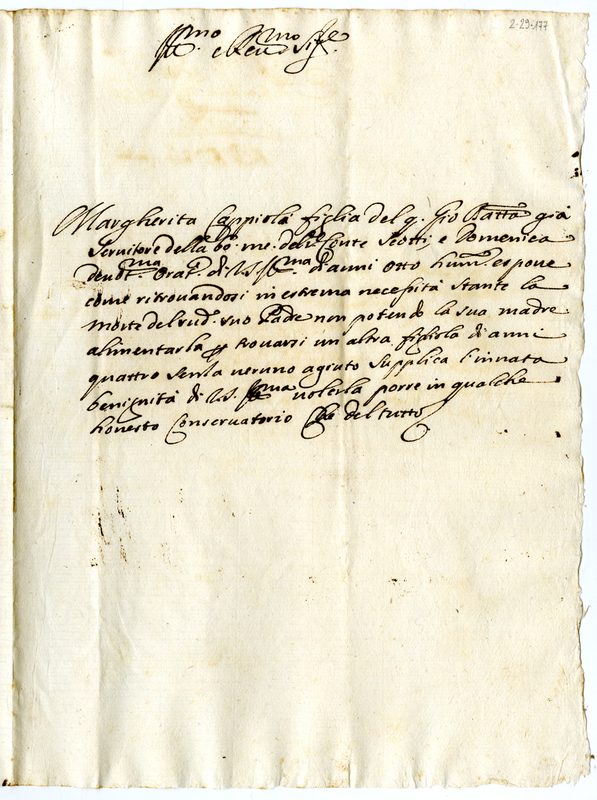 2-29-177
Ill.mo e Reu.mo Sig.re
Margherita Cappiola figlia del q. Gio Batta già
Seruitore della bo: me. del Conte Scotti, e Domenica
deuot.ma Orat. di V.S. Ill.ma d'anni otto hum.e espone
come ritrouandosi in estrema necessità stante la
morte del sud. suo Padre non potendo la sua madre
alimentarla p trouarsi un altra figliola di anni
quattro senza veruno agiuto supplica l'innata
benignità di V.S. Ill.ma volerla porre in qualche
honesto Conseruatorio Che del tutto